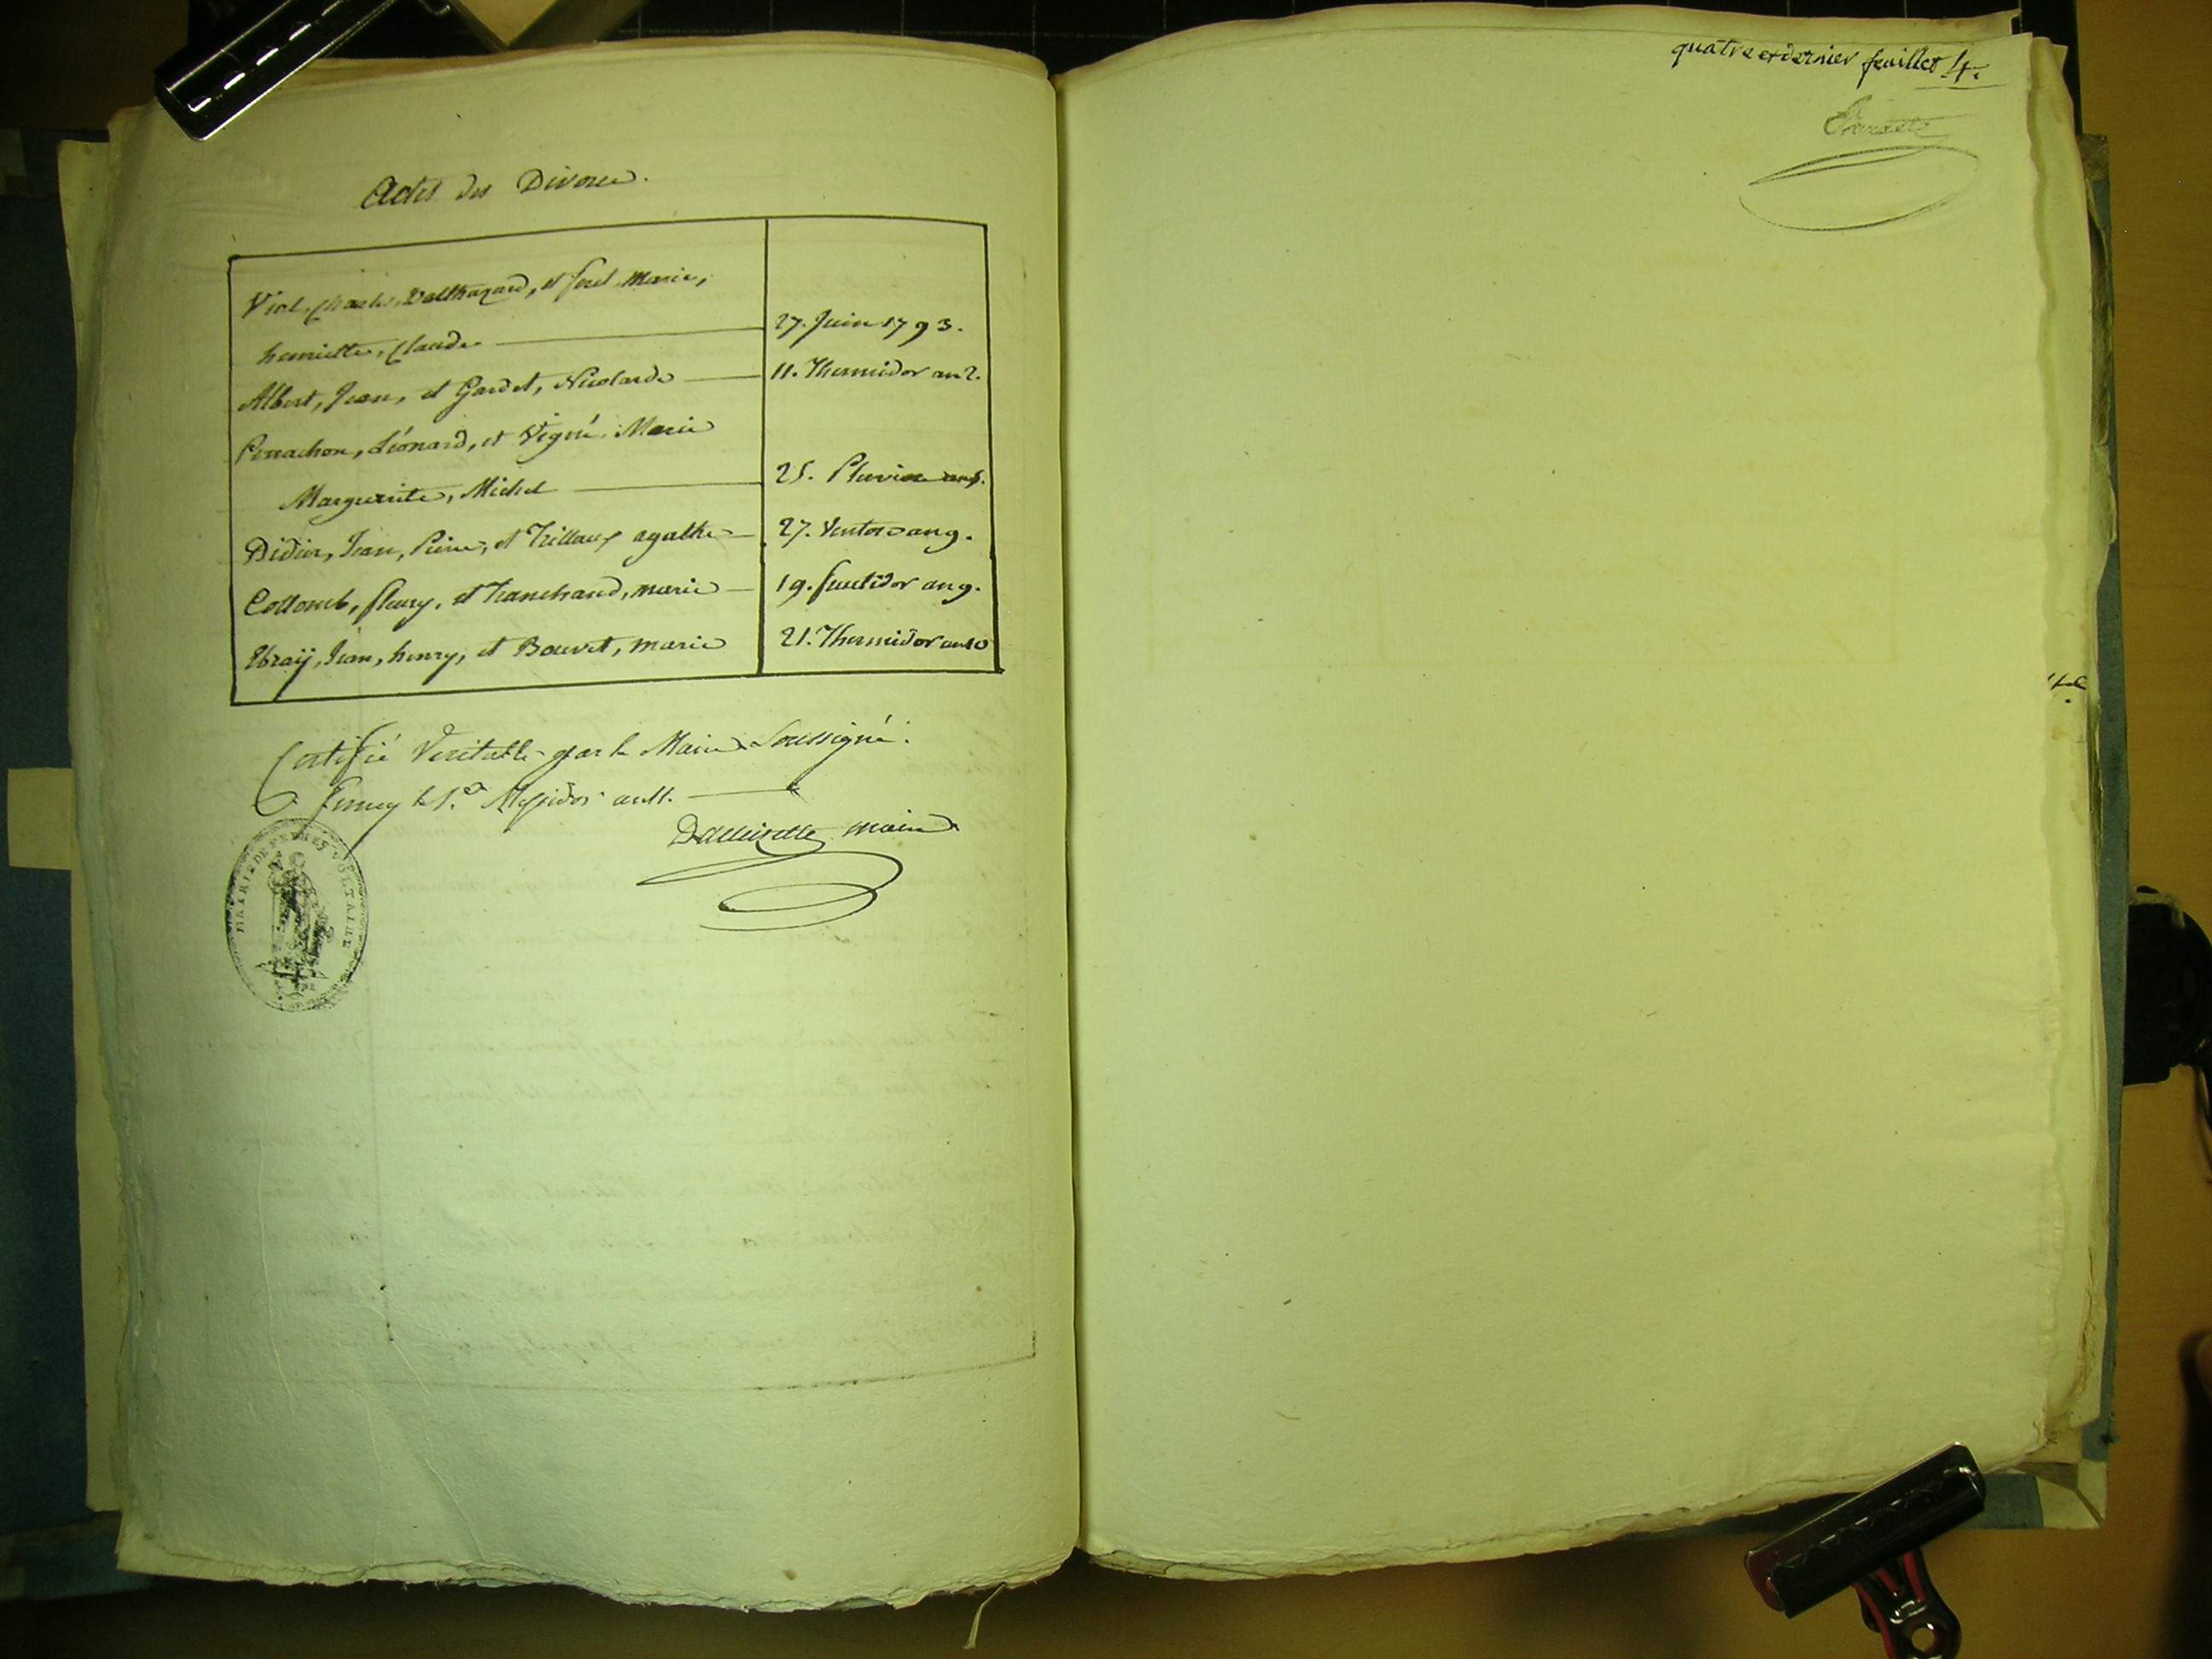 quatre et dernier feuillet 4.
Actes des Divorce.
Viol, Charles, Balthazard, et foret, Marie,
henriette, Claude 27. Juin 1793.
Albert, Jean, et Gardet, Nicolarde 11. Thermidor an 2.
Perrachon, Léonard, et Vigné, Marie
Marguerite, Michel 25. Pluviose
Didier, Jean, Pierre, et Trillaux agathe 27. Ventose an 9.
Collomb, fleury, et Tranchand, marie 19. fructidor an 9.
Ebraÿ, Jean, henry, et Bouvet, marie 21. Thermidor an 10
Certifié Veritable par le Maire Soussigné.
ferney le 1.er Messidor an 11.
maire
MAIRIE DE FERNEY VOLTAIRE